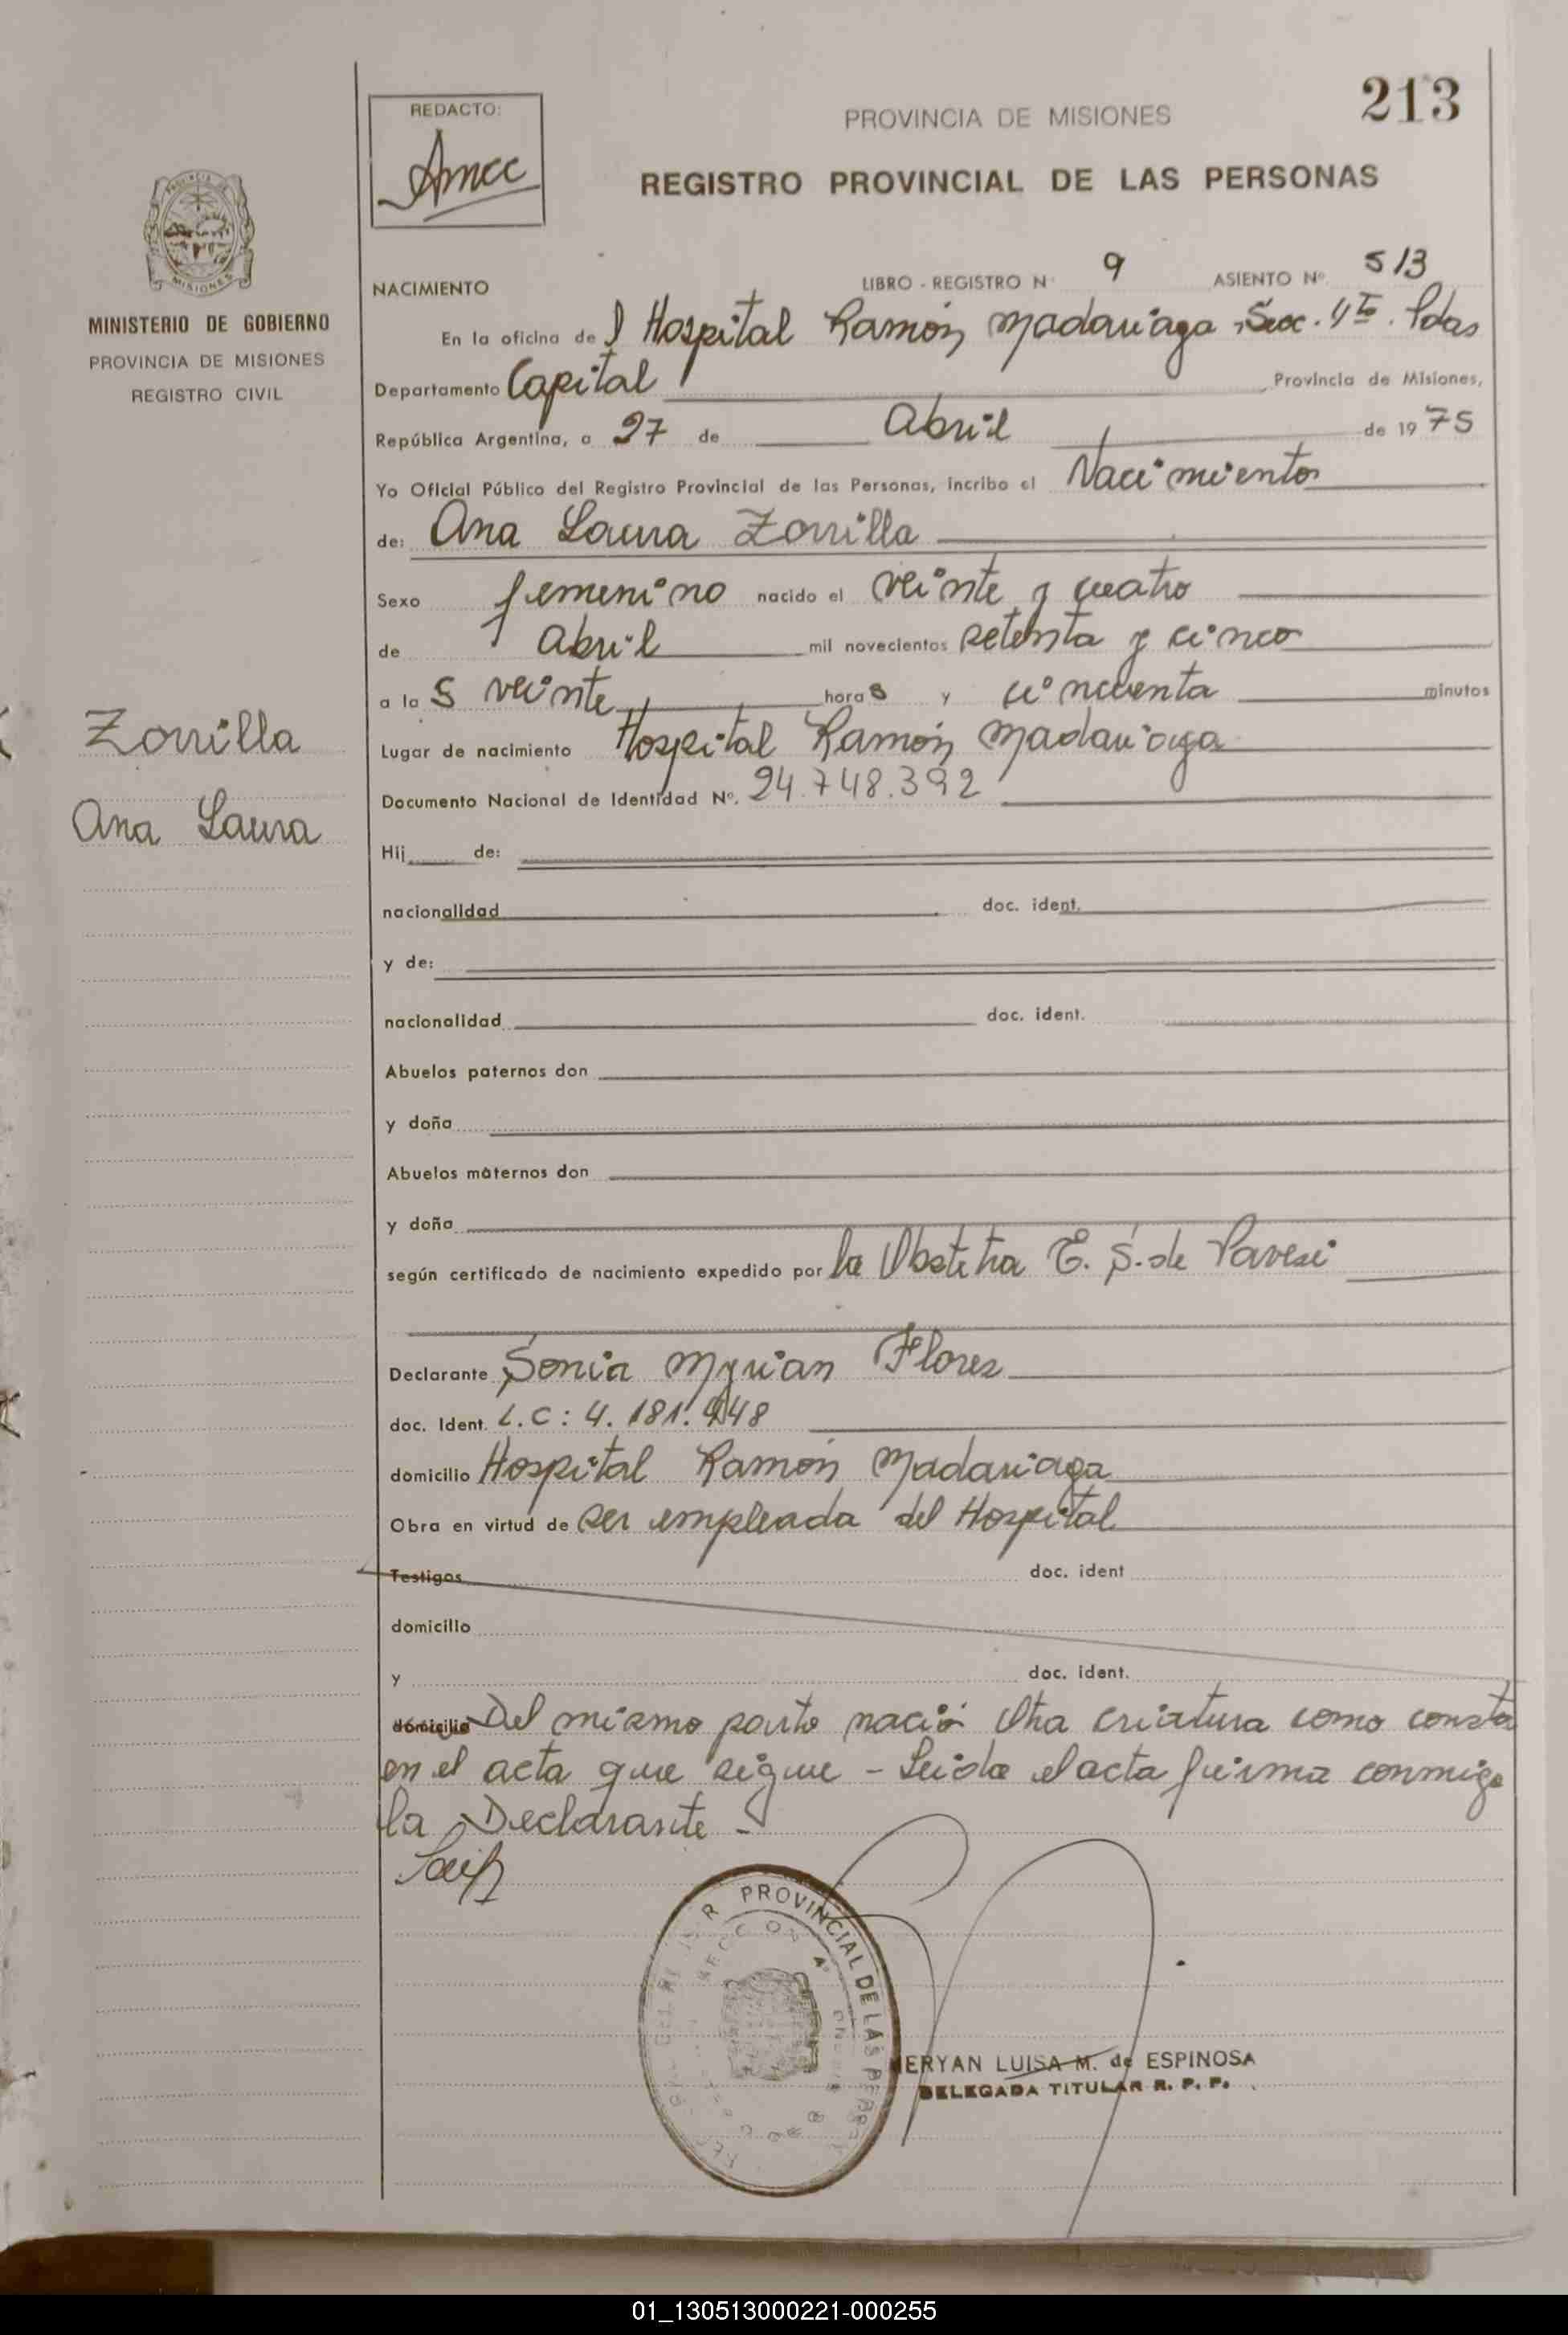 213
REDACTO:
PROVINCIA DE MISIONES
REGISTRO PROVINCIAL DE LAS PERSONAS
MINISTERIO DE GOBIERNO
PROVINCIA DE MISIONES
REGISTRO CIVIL
NACIMIENTO LIBRO - REGISTRO N° 9 ASIENTO N° 513
En la oficina del Hospital Ramón Madariaga, Secc. 4ta. Pdas
Departamento Capital Provincia de Misiones,
República Argentina, a 27 de Abril de 1975
Yo Oficial Público del Registro Provincial de las Personas, incribo el Nacimiento
de: Ana Laura Zorrilla
Sexo femenino nacido el veinte y cuatro
de Abril mil novecientos setenta y cinco
a las veinte horas y cincuenta minutos
Lugar de nacimiento Hospital Ramón Madariaga
Documento Nacional de Identidad N°. 24.748.392
Zorrilla
Ana Laura
Hij de:
nacionalidad doc. ident.
y de:
nacionalidad doc. ident.
Abuelos paternos don
y doña
Abuelos maternos don
y doña
según certificado de nacimiento expedido por la Obstetra E. S. de Pavesi
Declarante Sonia Myrian Flores
doc. Ident. L.C: 4.181.948
domicilio Hospital Ramón Madariaga
Obra en virtud de ser empleada del Hospital
Testigos doc. ident
domicilio
y doc. ident.
domicilio Del mismo parto nació otra criatura como consta
en el acta que sigue - Leida el acta firma conmigo
la Declarante -
PROVINCIAL DE LAS PERSO
SECCION 4°
ERYAN LUISA M. de ESPINOSA
DELEGADA TITULAR R. P. P.
01_130513000221-000255